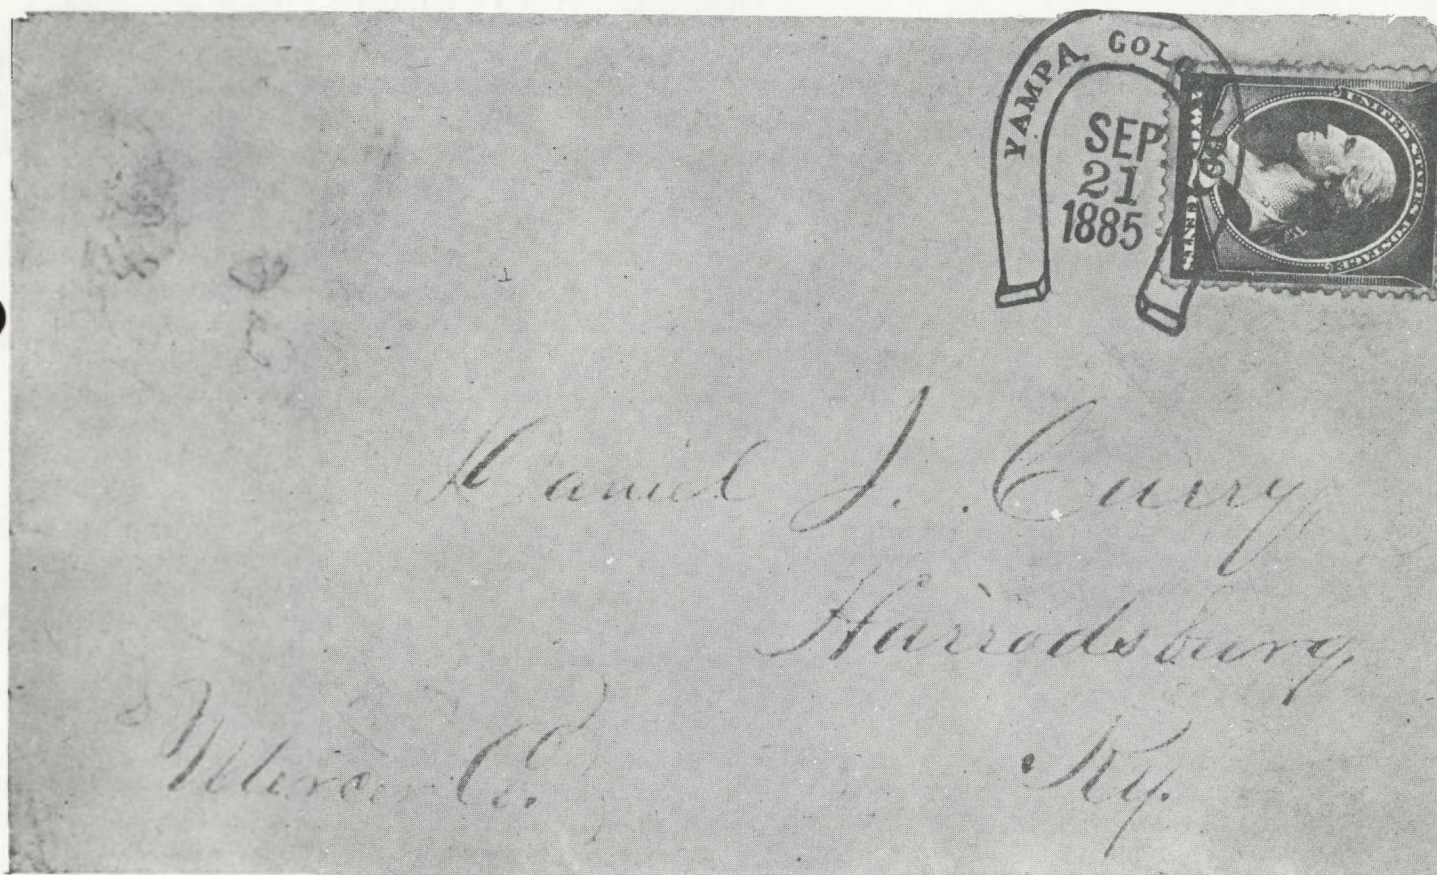 YAMPA COLO
SEP
21
1885
UNITED STATES POSTAGE
TWO CENTS
Daniel J. Curry,
Harrodsburg,
Mercer Co. Ky.